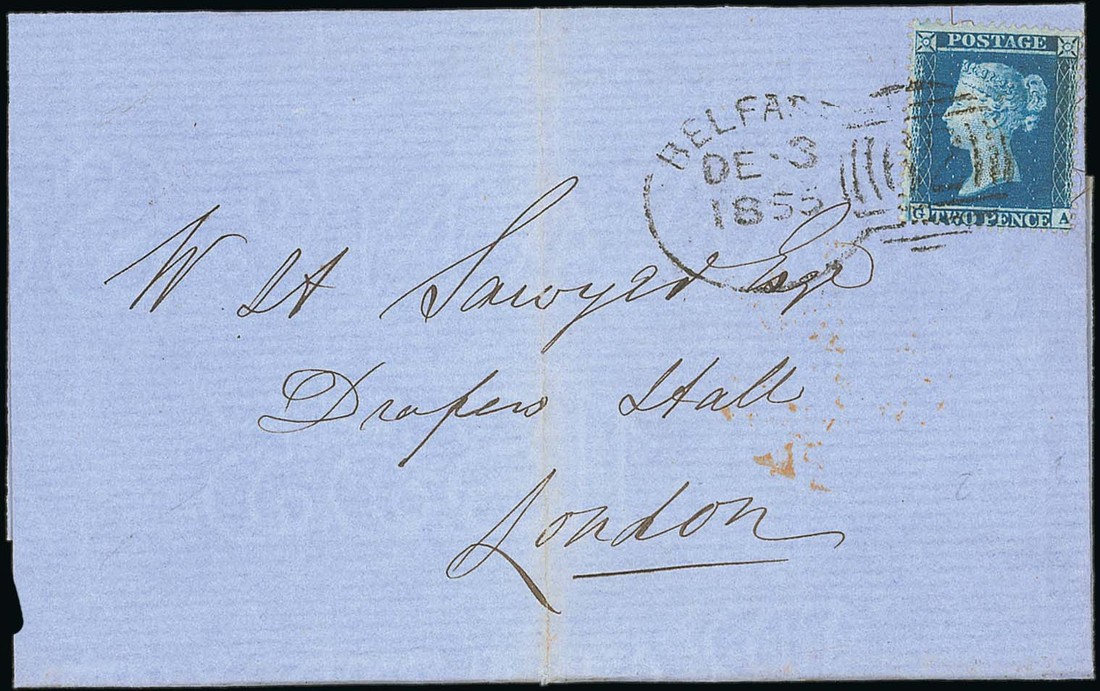 POSTAGE
BELFAST
DE·3
1855
G TWO PENCE A
W H Sawyer Esqr
Drapers Hall
London